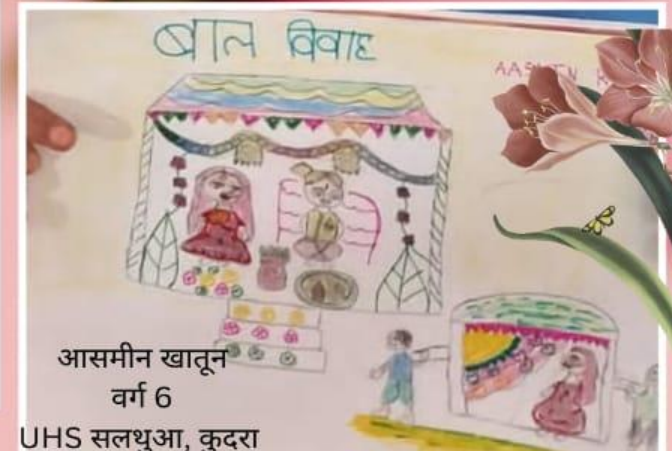 बाल विवाह
आसमीन खातून
वर्ग 6
UHS सलथुआ, कुदरा